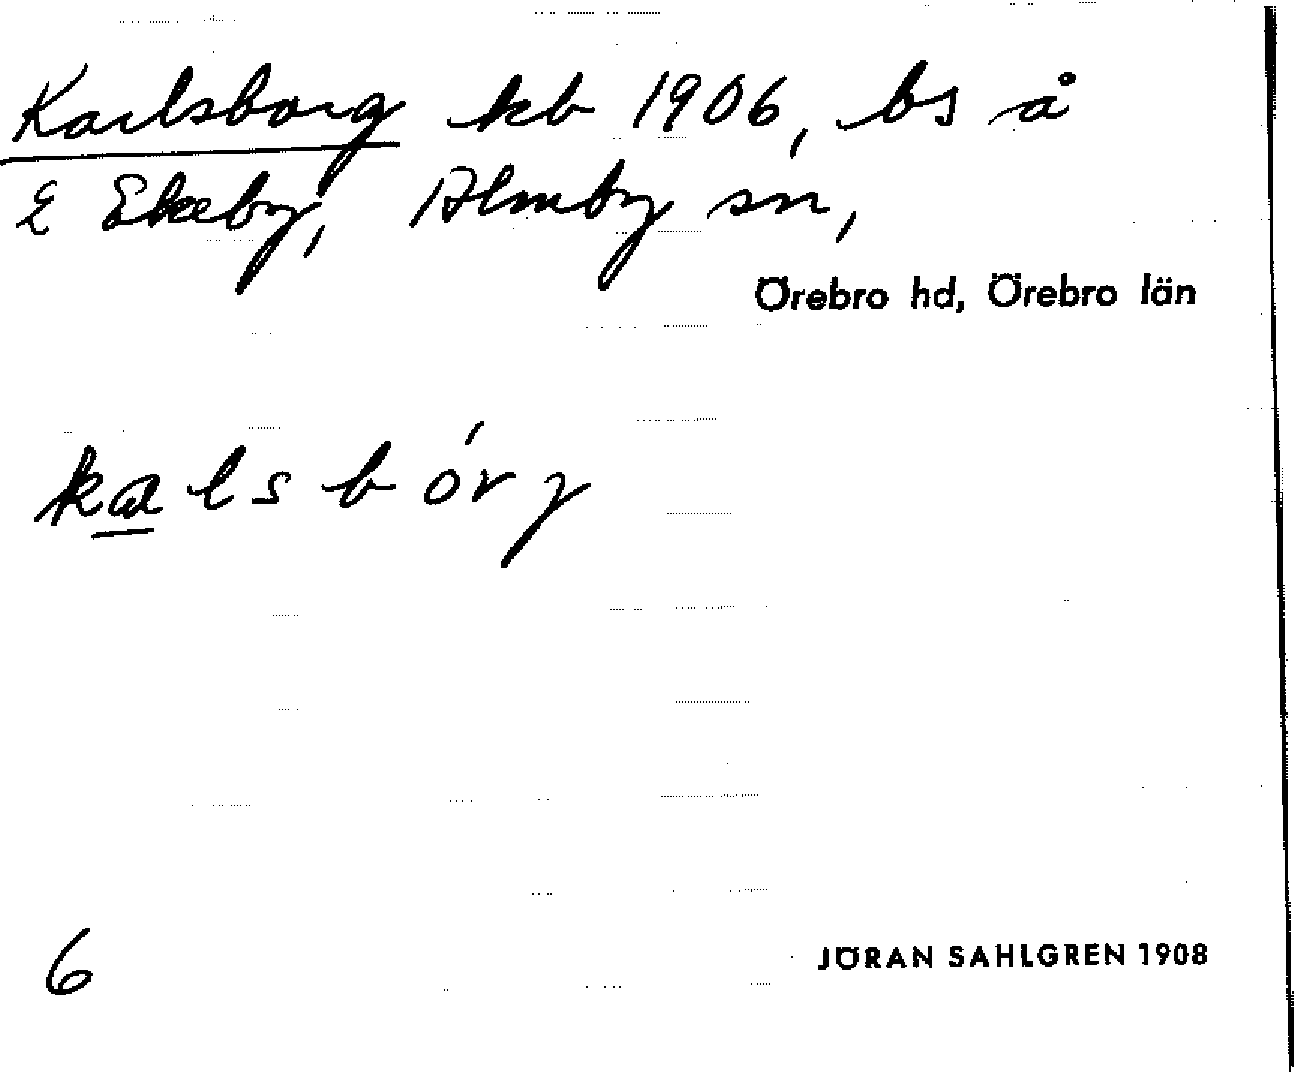 Karlsborg kb 1906, bs å
E Ekeby, Almby sn,
Örebro hd, Örebro län
kalsbórg
6
JÖRAN SAHLGREN 1908